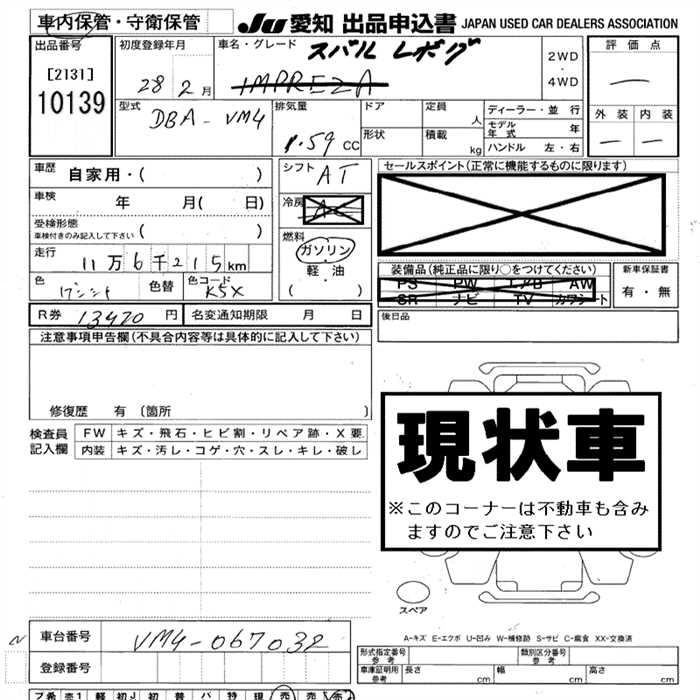 車内保管・守衛保管
JU 愛知 出品申込書 JAPAN USED CAR DEALERS ASSOCIATION
出品番号
[2131]
10139
初度登録年月
28 2月
車名・グレード
スバル レボーグ
IMPREZA
2WD
・
4WD
評価点
—
外装 内装
— —
型式
DBA-VM4
排気量
1.59 CC
ドア
形状
定員
人
積載
kg
ディーラー・並行
モデル年式 年
ハンドル 左・右
車歴
自家用・( )
車検 年 月( 日)
受検形態
車検付きのみ記入して下さい ( )
走行
11万6千215km
色
色替
色コード
K5X
シフト
AT
冷房
AC
燃料
ガソリン
・
軽・油
( )
セールスポイント(正常に機能するものに限ります)
装備品(純正品に限り○をつけてください)
PS PW エアB AW
SR ナビ TV カワシート
新車保証書
有・無
後日品
R券 13470 円 名変通知期限 月 日
注意事項申告欄(不具合内容等は具体的に記入して下さい)
修復歴 有 〔箇所 〕
検査員
記入欄
FW キズ・飛石・ヒビ割・リペア跡・X要.
内装 キズ・汚レ・コゲ・穴・スレ・キレ・破レ
現状車
※このコーナーは不動車も含み
ますのでご注意下さい
スペア
A-キズ E-エクボ U-凹み W-補修跡 S-サビ C-腐食 XX-交換済
N
車台番号 VM4-067032
登録番号
形式指定番号
参考
類別区分番号
参考
車庫証明用
参考
長さ cm 幅 cm 高さ cm